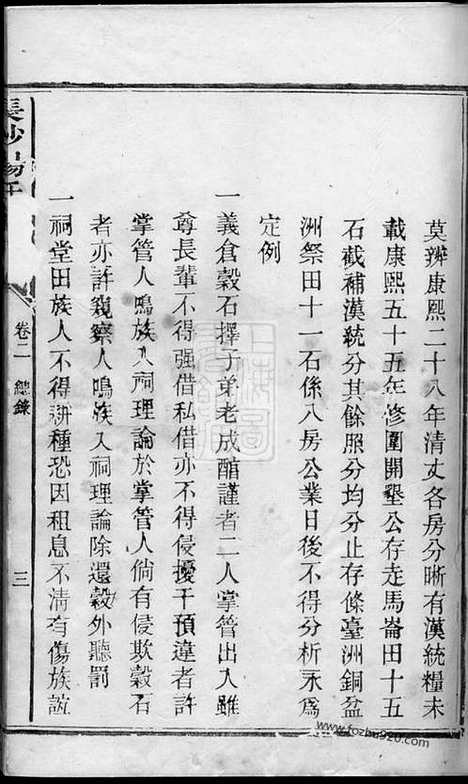 莫辨康熙二十八年清丈各房分晰有漢統糧未
載康熙五十五年修圍開墾公存走馬崙田十五
石截補漢統分其餘照分均分止存條臺洲銅盆
洲祭田十一石係八房公業日後不得分析永為
定例
一義倉穀石擇子弟老成醕謹者二人掌管出入雖
尊長輩不得强借私借亦不得侵擾干預違者許
掌管人鳴族入祠理論於掌管人倘有侵欺穀石
者亦許窺察人鳴族入祠理論除還穀外聽罰
一祠堂田族人不得耕種恐因租息不清有傷族誼
長沙
卷二 總錄
三
www.fozhu920.com